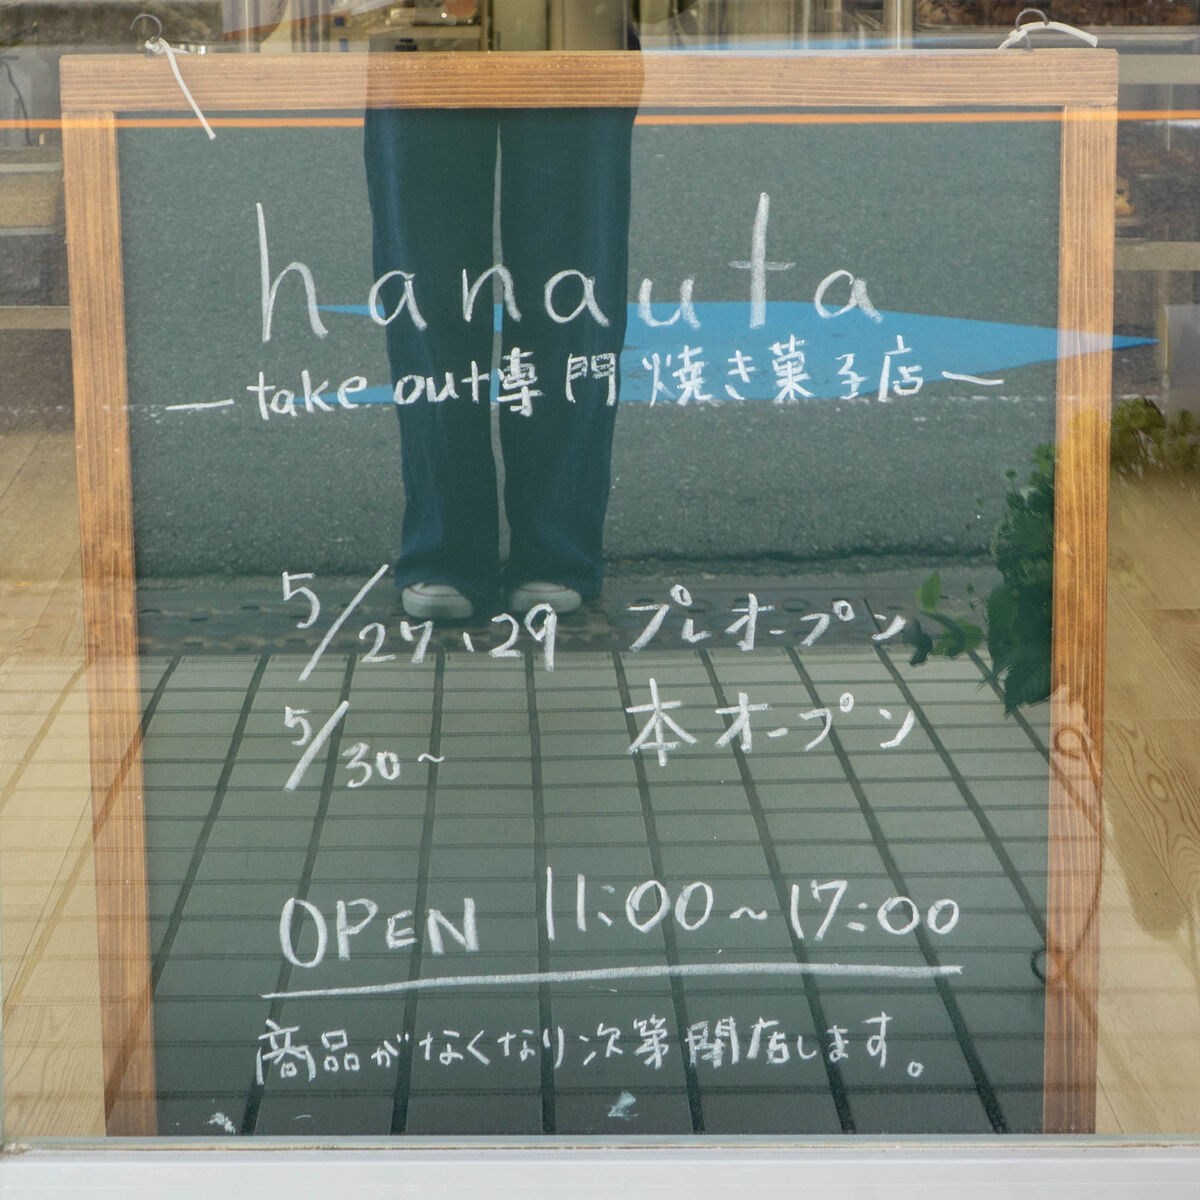 hanauta
—take out専門 焼き菓子店—
5/27、29 プレオープン
5/30~ 本オープン
OPEN 11:00~17:00
商品がなくなり次第閉店します。